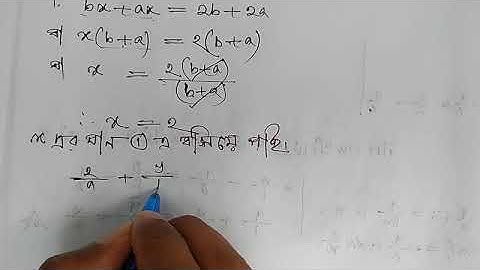 বা bx+ax = 2b+2a
বা x(b+a) = 2(b+a)
বা x = 2(b+a)/(b+a)
∴ x = 2
x এর মান ① এ বসিয়ে পাই।
2/a + y/